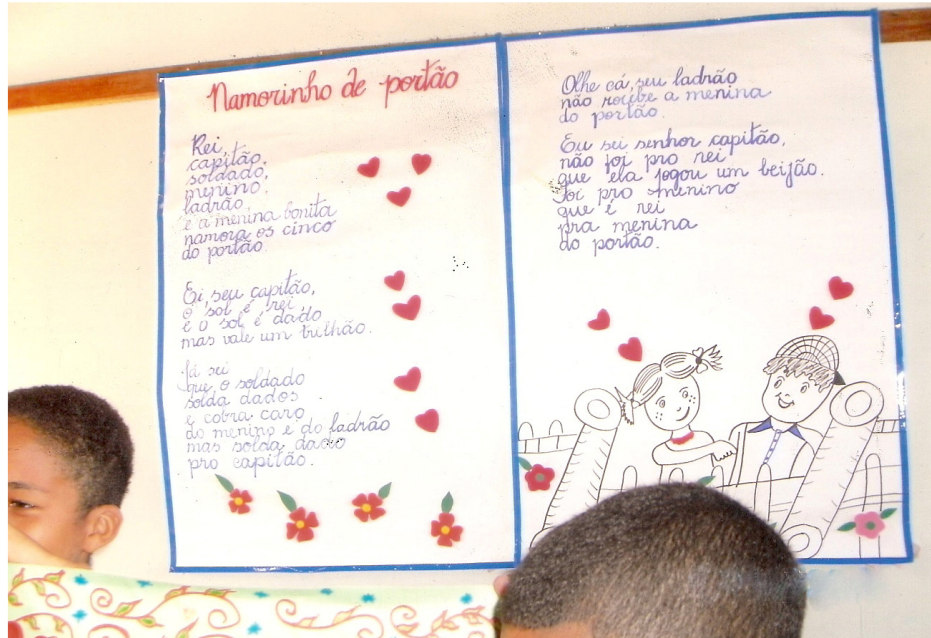 Namorinho de portão
Rei,
capitão,
soldado,
menino,
ladrão
e a menina bonita
namora os cinco
do portão.
Ei, seu capitão,
o sol é rei,
e o sol é dado
mas vale um trilhão.
Já sei
que o soldado
solda dados
e cobra caro
do menino e do ladrão
mas solda dado
pro capitão.
Olhe cá, seu ladrão
não roube a menina
do portão.
Eu sei senhor capitão,
não foi pro rei
que ela jogou um beijão.
Foi pro menino
que é rei
pra menina
do portão.